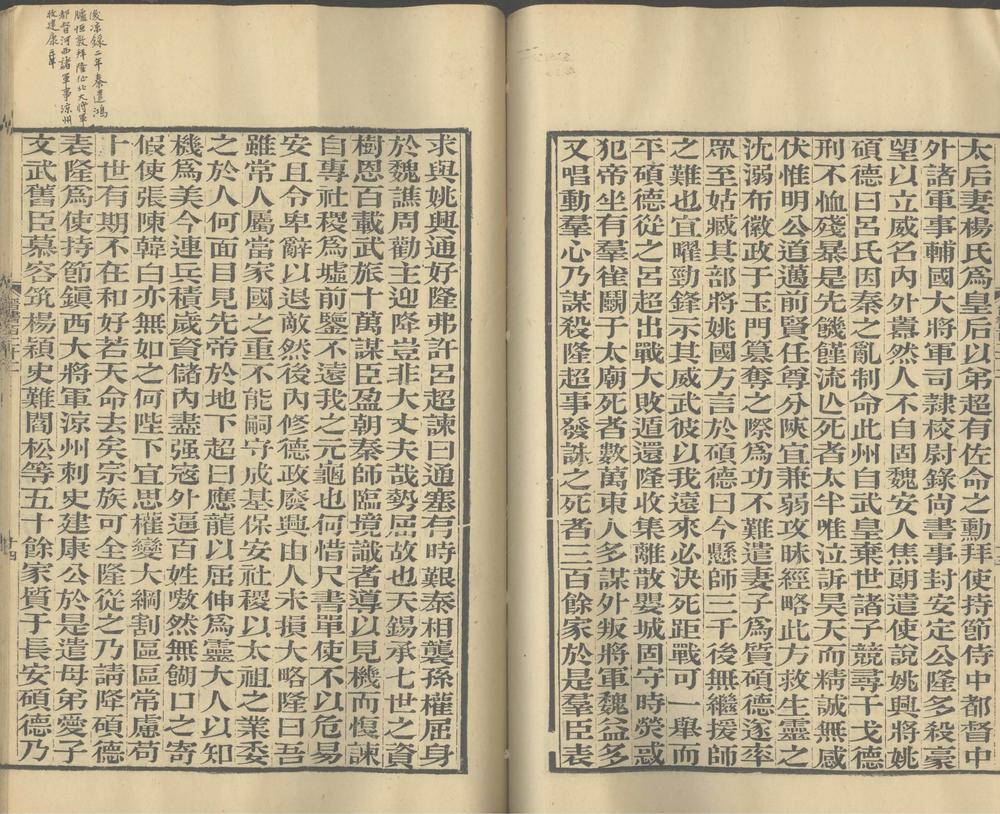 太后妻楊氏爲皇后以弟超有佐命之勳拜使持節侍中都督中
外諸軍事輔國大將軍司隷校尉錄尚書事封安定公隆多殺豪
望以立威名內外囂然人不自固魏安人焦朗遣使說姚興將姚
碩德曰呂氏因秦之亂制命此州自武皇棄世諸子競尋干戈德
刑不恤殘暴是先饑饉流亾死者太半唯泣訴昊天而精誠無感
伏惟明公道邁前賢任尊分陜宜兼弱攻昧經略此方救生靈之
沈溺布徽政于玉門簒奪之際爲功不難遣妻子爲質碩德遂率
眾至姑臧其部將姚國方言於碩德曰今懸師三千後無繼援師
之難也宜曜勁鋒示其威武彼以我遠來必決死距戰可一舉而
平碩德從之呂超出戰大敗遁還隆收集離散嬰城固守時熒惑
犯帝坐有羣雀鬭于太廟死者數萬東人多謀外叛將軍魏益多
又唱動羣心乃謀殺隆超事發誅之死者三百餘家於是羣臣表
求與姚興通好隆弗許呂超諫曰通塞有時艱泰相襲孫權屈身
於魏譙周勸主迎降豈非大丈夫哉勢屈故也天錫承七世之資
樹恩百載武旅十萬謀臣盈朝秦師臨境識者導以見機而愎諫
自專社稷爲墟前鑒不遠我之元龜也何惜尺書單使不以危易
安且令卑辭以退敵然後內修德政廢興由人未損大略隆曰吾
雖常人屬當家國之重不能嗣守成基保安社稷以太祖之業委
之於人何面目見先帝於地下超曰應龍以屈伸爲靈大人以知
機爲美今連兵積歲資儲內盡强寇外逼百姓嗷然無餬口之寄
假使張陳韓白亦無如之何陛下宜思權變大綱割區區常慮苟
卜世有期不在和好若天命去矣宗族可全隆從之乃請降碩德
表隆爲使持節鎭西大將軍涼州刺史建康公於是遣母弟愛子
文武舊臣慕容筑楊穎史難閻松等五十餘家質于長安碩德乃
十四
後涼錄二年秦遣鴻
臚恒敦拜隆征北大將軍
都督河西諸軍事涼州
牧建康